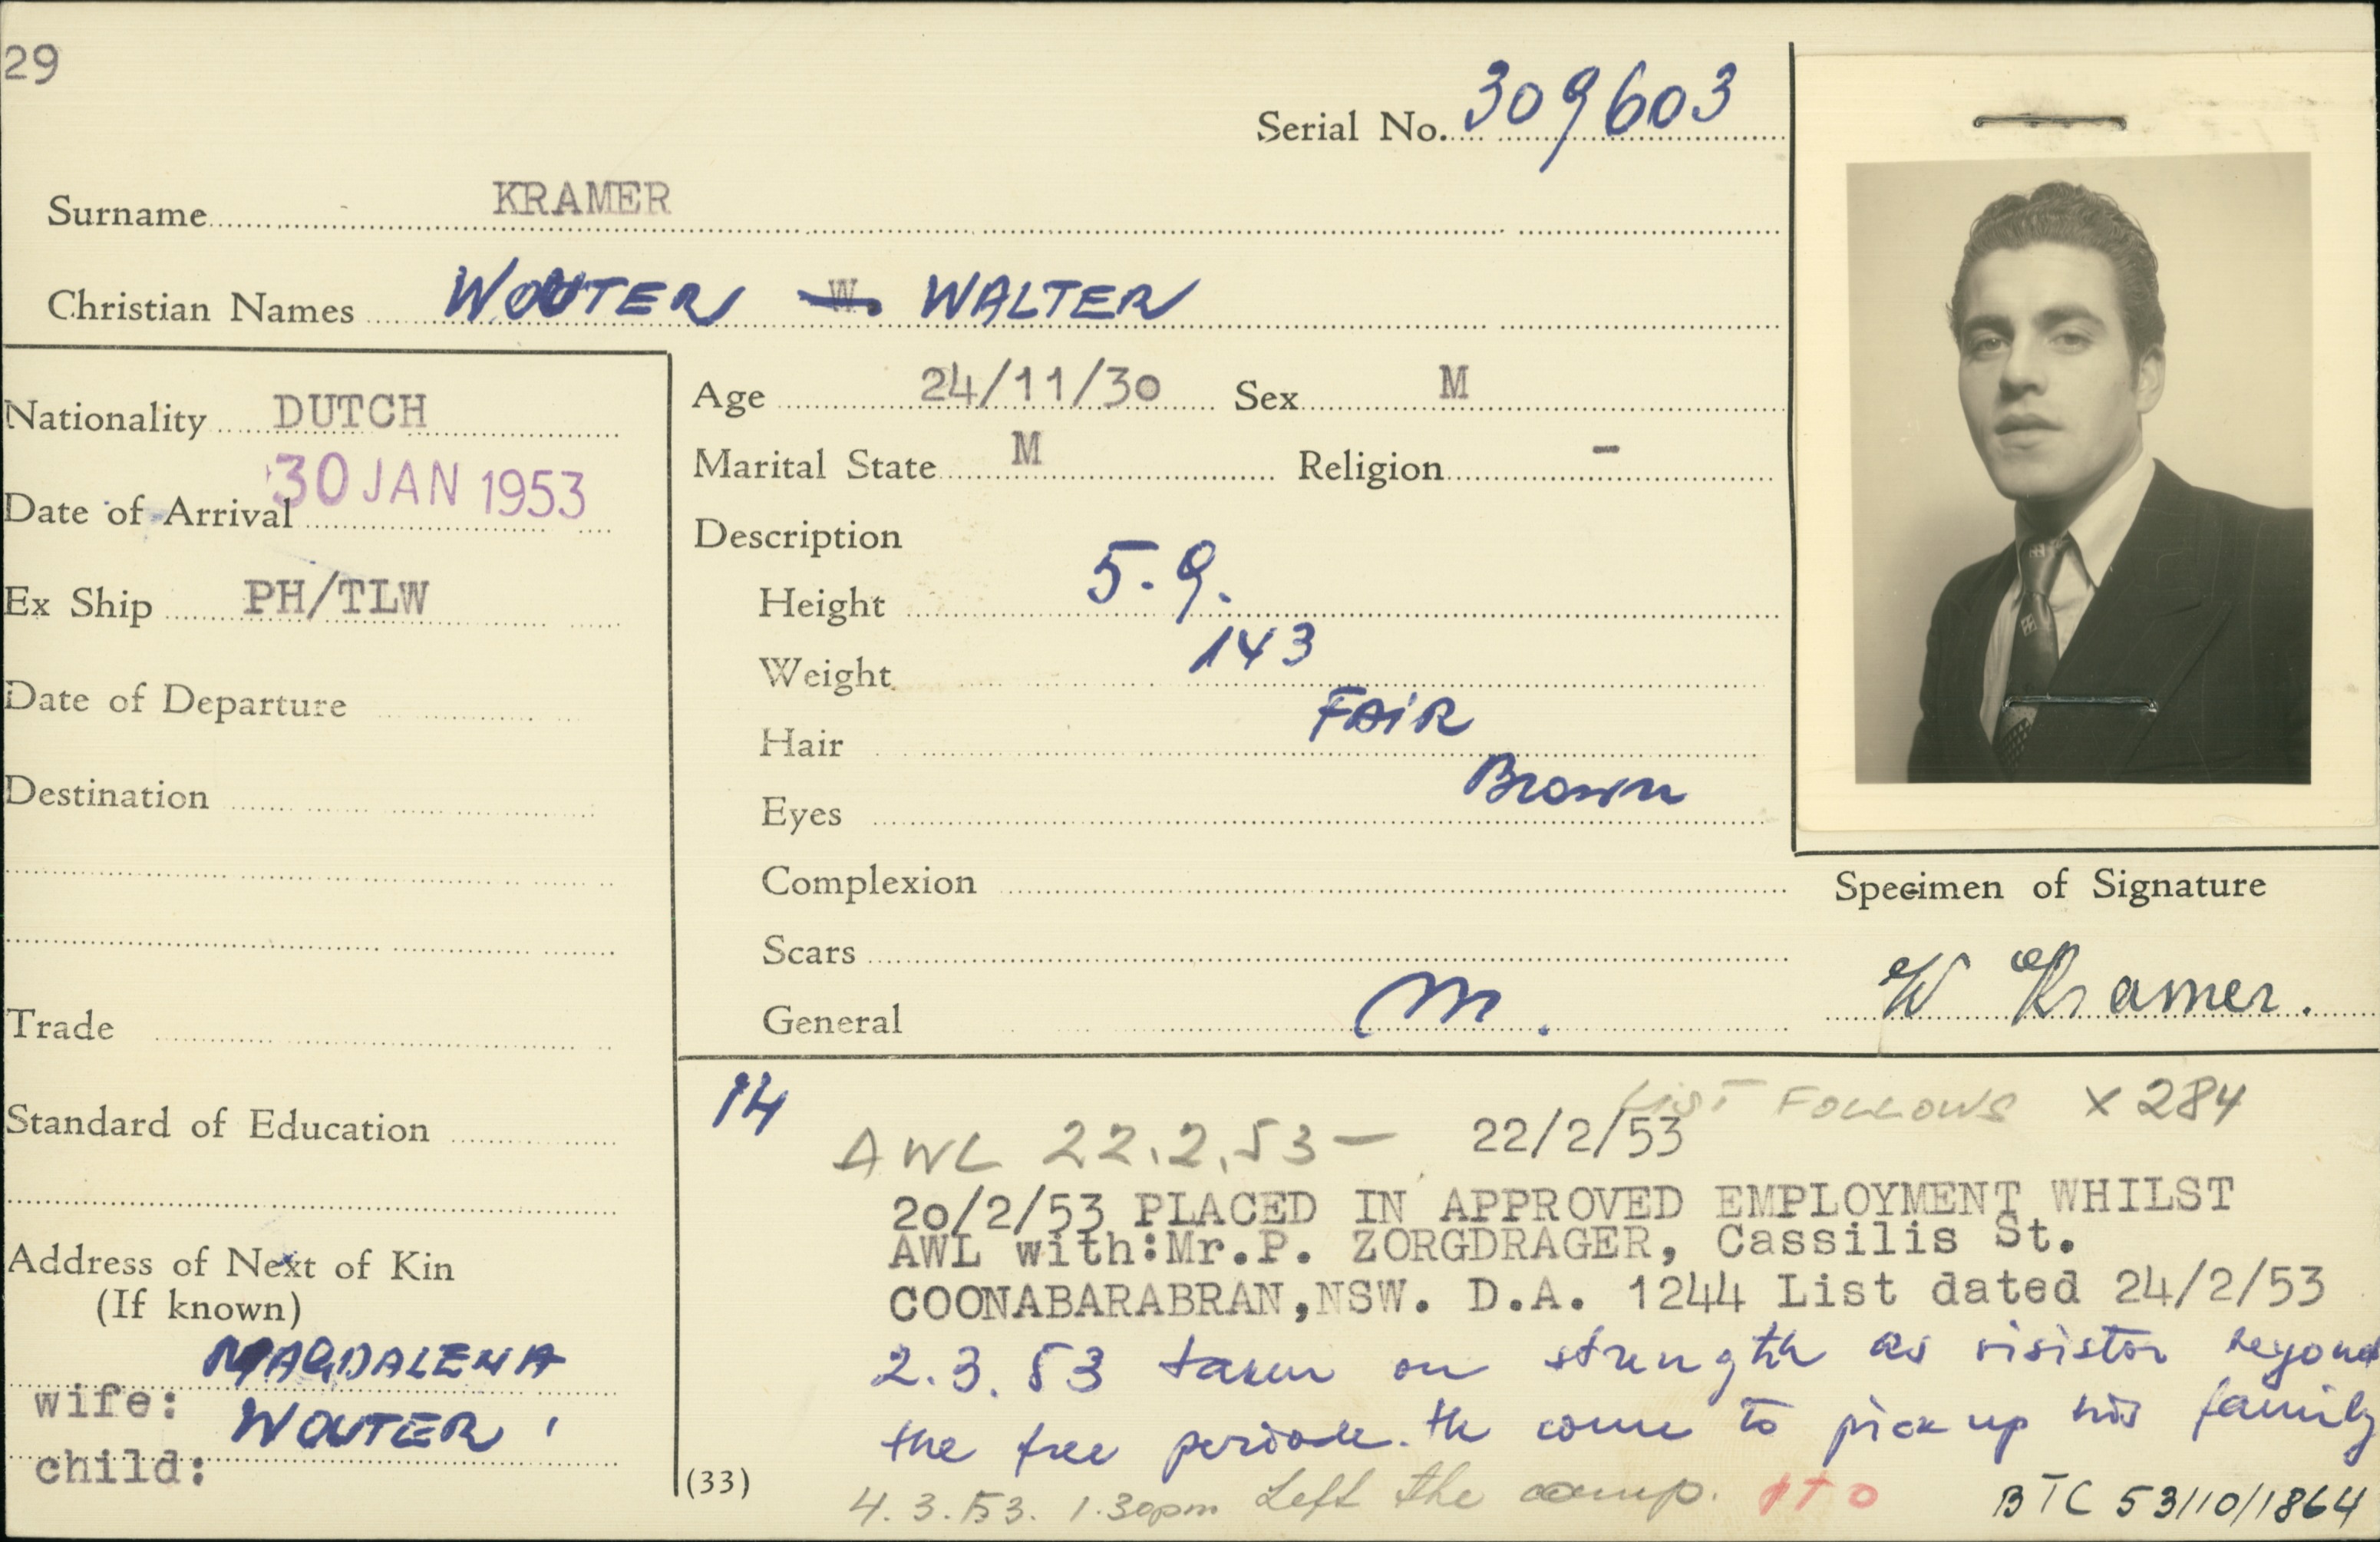 29
Serial No. 309603
Surname KRAMER
Christian Names WOUTER W. WALTER
Nationality DUTCH
Date of Arrival 30 JAN 1953
Ex Ship PH/TLW
Date of Departure
Destination
Trade
Standard of Education
Address of Next of Kin
(If known)
MAGDALENA
wife:
WOUTER
child:
Age 24/11/30 Sex M
Marital State M Religion -
Description
Height 5.9.
Weight 143
Hair FAIR
Eyes Brown
Complexion
Scars
General M.
Specimen of Signature
W Kramer.
14
LIST FOLLOWS X 284
AWL 22.2.53 — 22/2/53
20/2/53 PLACED IN APPROVED EMPLOYMENT WHILST
AWL with:Mr.P. ZORGDRAGER, Cassilis St.
COONABARABRAN,NSW. D.A. 1244 List dated 24/2/53
2.3.53 taken on strength as visistor beyond
the free periode. He come to pick up his family
(33)
4.3.53. 1.30pm Left the camp. PTO
BTC 53/10/1864